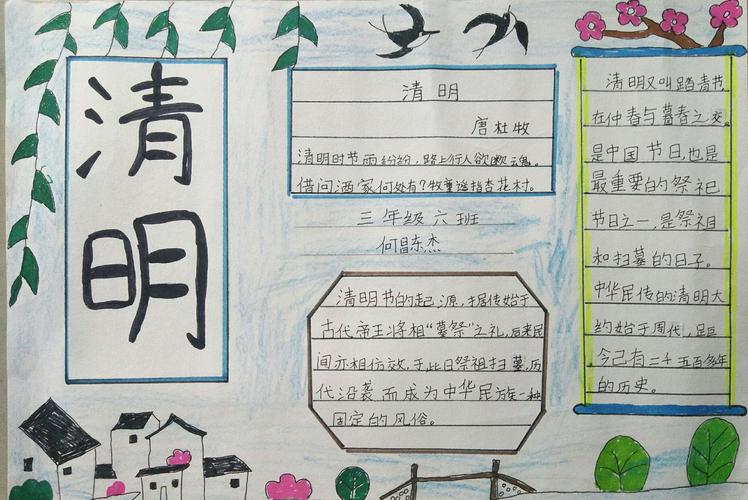 清明
清明
唐杜牧
清明时节雨纷纷，路上行人欲断魂。
借问酒家何处有？牧童遥指杏花村。
三年级六班
何昌东杰
清明节的起源，据传始于
古代帝王将相“墓祭”之礼，后来民
间亦相仿效，于此日祭祖扫墓，历
代沿袭而成为中华民族一种
固定的风俗。
清明又叫踏青节，
在仲春与暮春之交，
是中国节日，也是
最重要的祭祀
节日之一，是祭祖
和扫墓的日子。
中华民传的清明大
约始于周代，距
今己有二千五百多年
的历史。